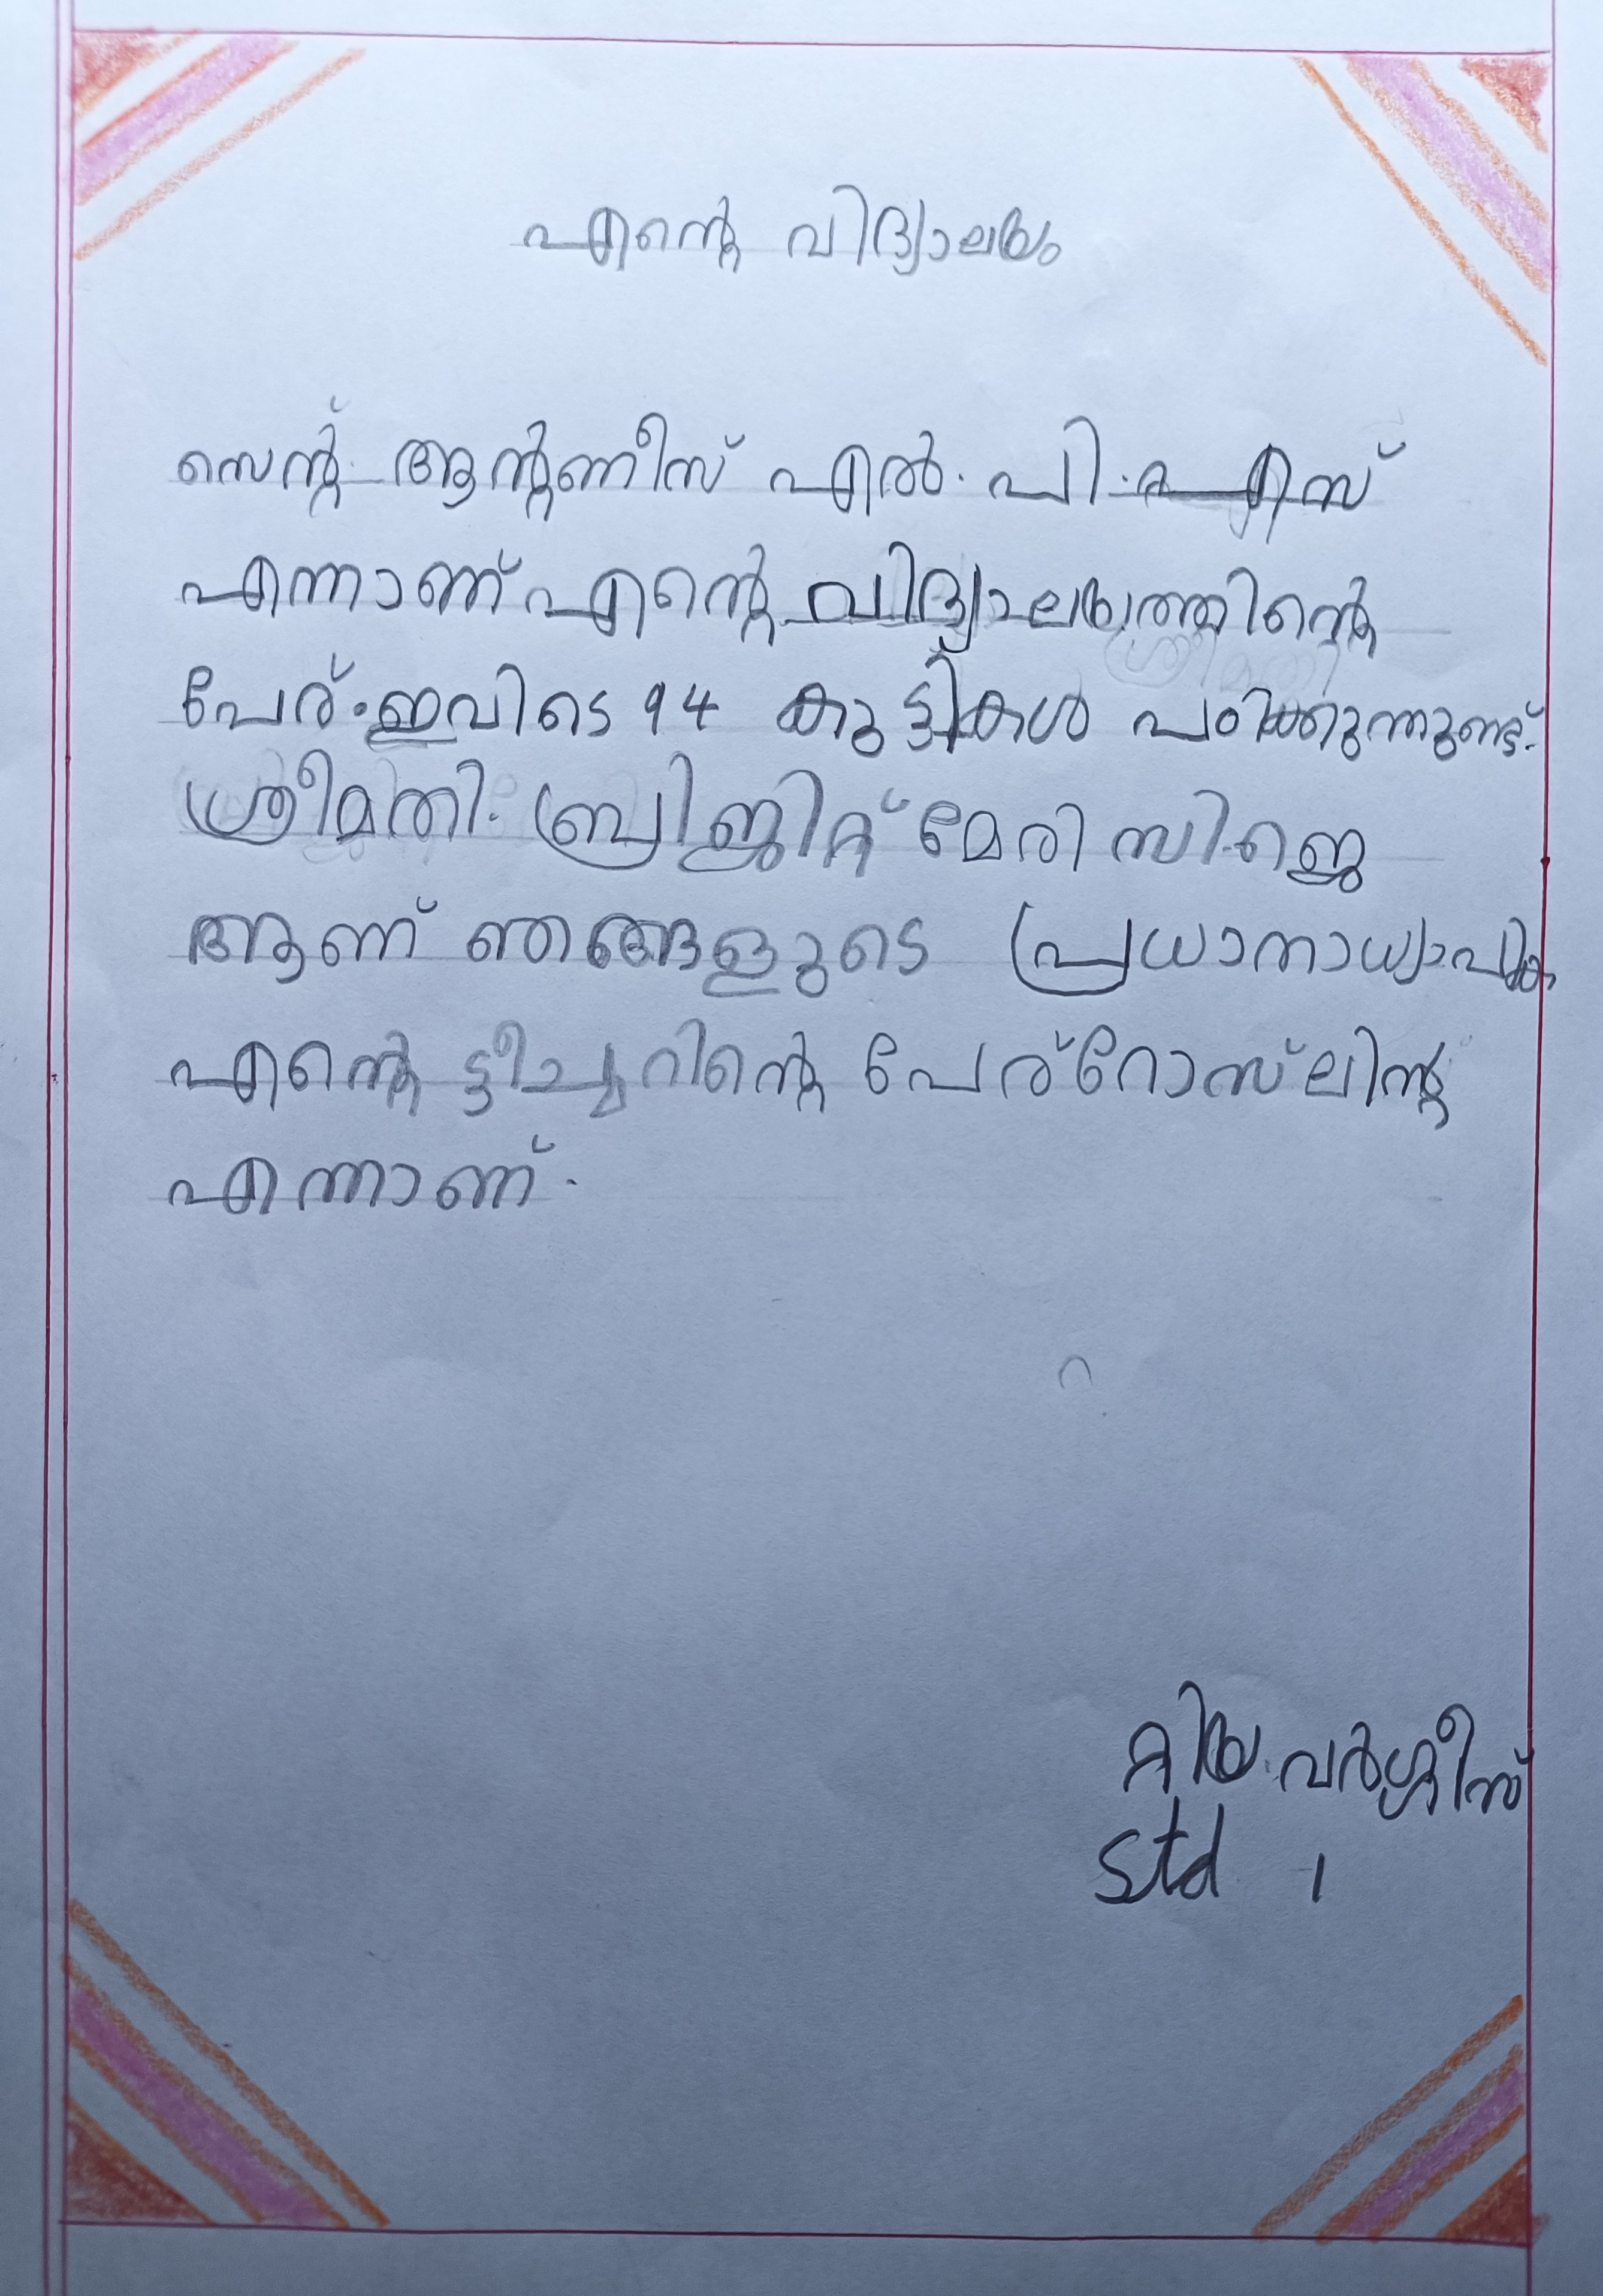 എന്റെ വിദ്യാലയം
സെന്റ്. ആന്റണീസ് എൽ. പി. എസ്
എന്നാണ് എന്റെ വിദ്യാലയത്തിന്റെ
പേര്. ഇവിടെ 94 കുട്ടികൾ പഠിക്കുന്നുണ്ട്.
ശ്രീമതി. ബ്രിജിറ്റ് മേരി സി.ജെ
ആണ് ഞങ്ങളുടെ പ്രധാനാധ്യാപിക
എന്റെ ടീച്ചറിന്റെ പേര് റോസ്‌ലിന്റ
എന്നാണ്.
റിയ വർഗ്ഗീസ്
Std 1